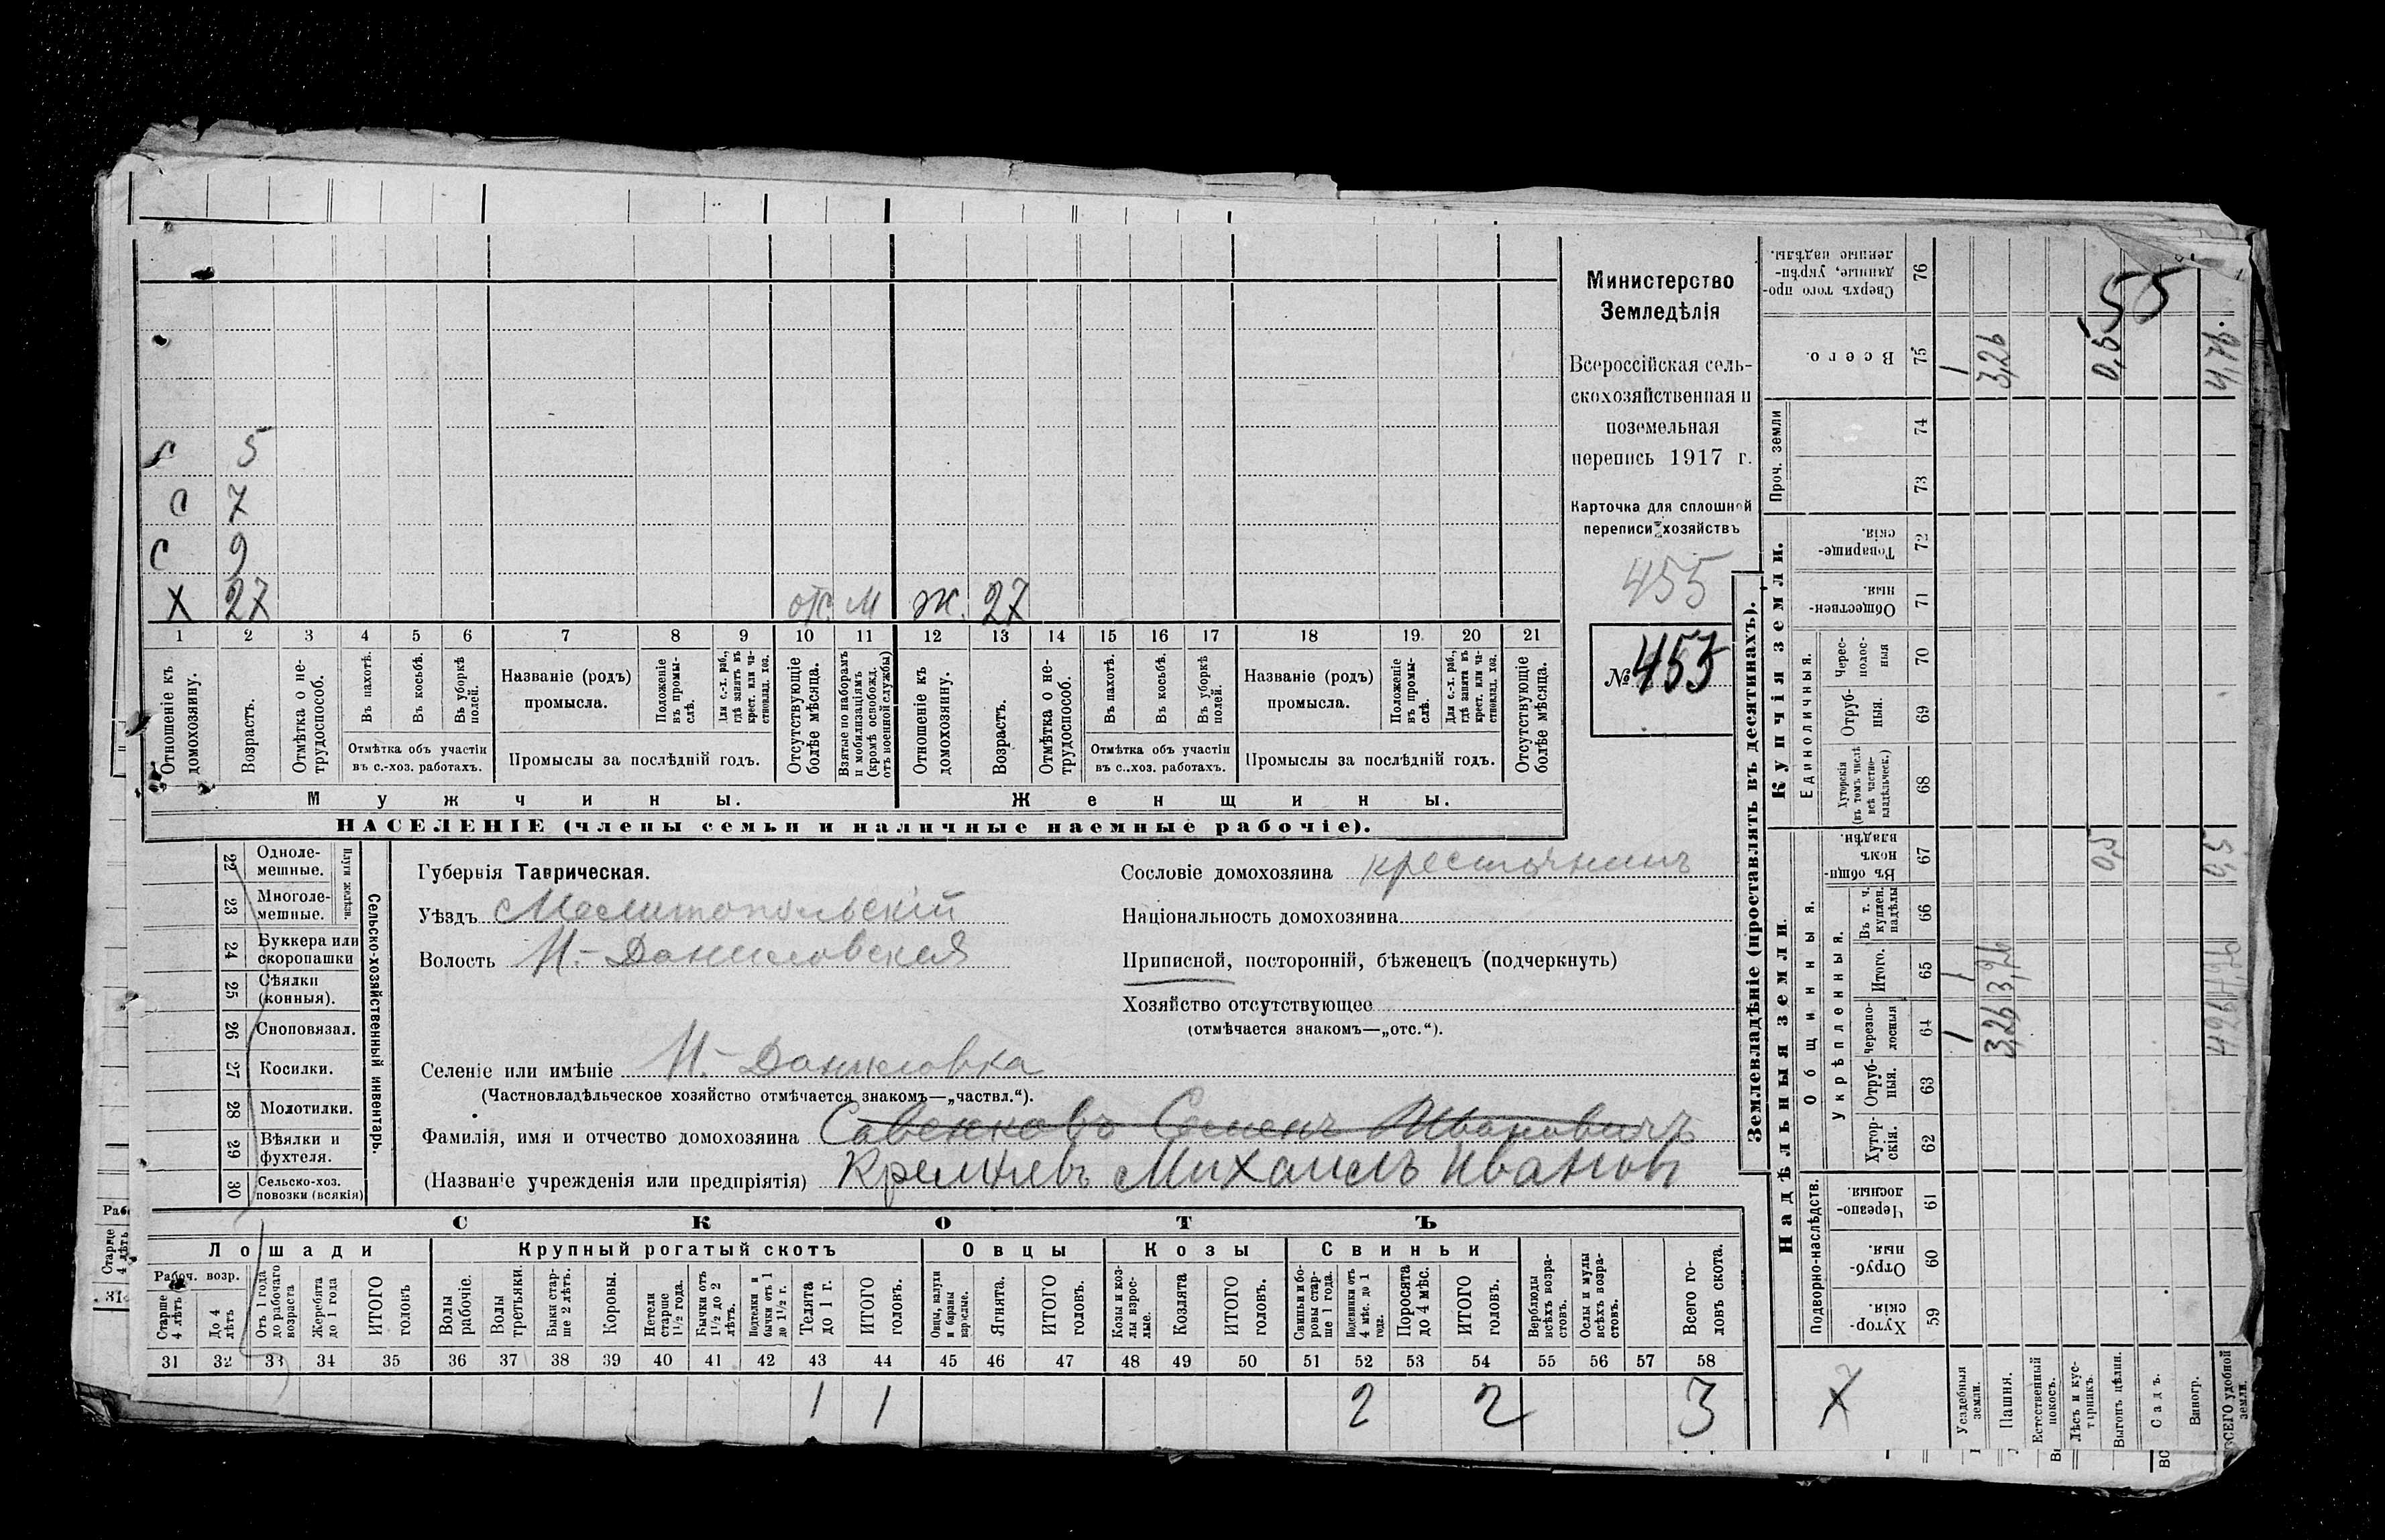 с 5
с 7
с 9
Х 27 отс. М ж. 27
1 2 3 4 5 6 7 8 9 10 11 12 13 14 15 16 17 18 19 20 21
Отношеніе къ домохозяину.
Возрастъ.
Отмѣтка о не-
трудоспособ.
Въ пахотѣ.
Въ косьбѣ.
Въ уборкѣ
полей.
Отмѣтка объ участіи
въ с.-хоз. работахъ.
Названіе (родъ)
промысла.
Положеніе
въ промы-
слѣ.
Для с.-х. раб.,
гдѣ занятъ въ
крест. или ча-
стновлад. хоз.
Промыслы за послѣдній годъ.
Отсутствующіе
болѣе мѣсяца.
Взятые по наборамъ
и мобилизаціямъ
(кромѣ освобожд.
отъ военной службы)
Отношеніе къ
домохозяину.
Возрастъ.
Отмѣтка о не-
трудоспособ.
Въ пахотѣ.
Въ косьбѣ.
Въ уборкѣ
полей.
Отмѣтка объ участіи
въ с.-хоз. работахъ.
Названіе (родъ)
промысла.
Положеніе
въ промы-
слѣ.
Для с.-х. раб.,
гдѣ занята въ
крест. или ча-
стновлад. хоз.
Промыслы за послѣдній годъ.
Отсутствующіе
болѣе мѣсяца.
Мужчины.
Женщины.
НАСЕЛЕНІЕ (члены семьи и наличные наемные рабочіе).
Министерство
Земледѣлія
Всероссійская сель-
скохозяйственная и
поземельная
перепись 1917 г.
Карточка для сплошной
переписи хозяйствъ
455
№ 455
22 Одноле-
мешные.
23 Многоле-
мешные.
Плуги желѣзн.
24 Буккера или
скоропашки
25 Сѣялки
(конныя).
26 Сноповязал.
27 Косилки.
28 Молотилки.
29 Вѣялки и
фухтеля.
30 Сельско-хоз.
повозки (всякія)
Сельско-хозяйственный инвентарь.
Губернія Таврическая.
Уѣздъ Мелитопольскій
Волость Н.-Даниловская
Селеніе или имѣніе Н.-Даниловка
(Частновладѣльческое хозяйство отмѣчается знакомъ—„частвл.“).
Фамилія, имя и отчество домохозяина Савенковъ Семенъ Ивановичъ
(Названіе учрежденія или предпріятія) Кремневъ Михаилъ Иванов
Сословіе домохозяина крестьянинъ
Національность домохозяина
Приписной, посторонній, бѣженецъ (подчеркнуть)
Хозяйство отсутствующее
(отмѣчается знакомъ—„отс.“).
СКОТЪ
Лошади
Крупный рогатый скотъ
Овцы
Козы
Свиньи
Рабоч. возр.
Старше
4 лѣтъ
До 4
лѣтъ
Отъ 1 года
до рабочаго
возраста
Жеребята
до 1 года
ИТОГО
головъ
Волы
рабочіе.
Волы
третьяки.
Быки стар-
ше 2 лѣтъ.
Коровы.
Нетели
старше
1½ года.
Бычки отъ
1½ до 2
лѣтъ.
Подтелки и
бычки отъ 1
до 1½ г.
Телята
до 1 г.
ИТОГО
головъ.
Овцы, валухи
и бараны
взрослые.
Ягнята.
ИТОГО
головъ.
Козы и коз-
лы взрос-
лые.
Козлята
ИТОГО
головъ.
Свиньи и бо-
ровы стар-
ше 1 года.
Подсвинки отъ
4 мѣс. до 1
года.
Поросята
до 4 мѣс.
ИТОГО
головъ.
Верблюды
всѣхъ возра-
стовъ.
Ослы и мулы
всѣхъ возра-
стовъ.
Всего го-
ловъ скота.
31 32 33 34 35 36 37 38 39 40 41 42 43 44 45 46 47 48 49 50 51 52 53 54 55 56 57 58
1 1 2 2 3
Землевладѣніе (проставлять въ десятинахъ).
Надѣльныя земли.
Купчія земли.
Проч. земли
Подворно-наслѣдств.
Общинныя.
Укрѣпленныя.
Единоличныя.
Хутор-
скія. 59
Отруб-
ныя. 60
Черезпо-
лосныя. 61
Хутор-
скія. 62
Отруб-
ныя. 63
Черезпо-
лосныя 64
Итого. 65
Въ т. ч.
куплен.
надѣлы 66
Въ общин-
номъ
владѣн. 67
Хуторскія
(въ томъ числѣ
всѣ частно-
владѣльческ.) 68
Отруб-
ныя. 69
Черес-
полос-
ныя 70
Обществен-
ныя. 71
Товарище-
скія. 72
73
74
Всего. 75
Сверхъ того про-
данные, укрѣп-
ленные надѣлы. 76
Х
Усадебныя
земли.
1 1 1
Пашня.
3,26 3,26 3,26
Естественный
покосъ.
Лѣсъ и кус-
тарникъ.
Выгонъ цѣлин.
0,5 0,5
Садъ.
Виногр.
ВСЕГО удобной
земли.
4,26 4,26 0,5 4,76.
55
Старше
4 лѣтъ
31